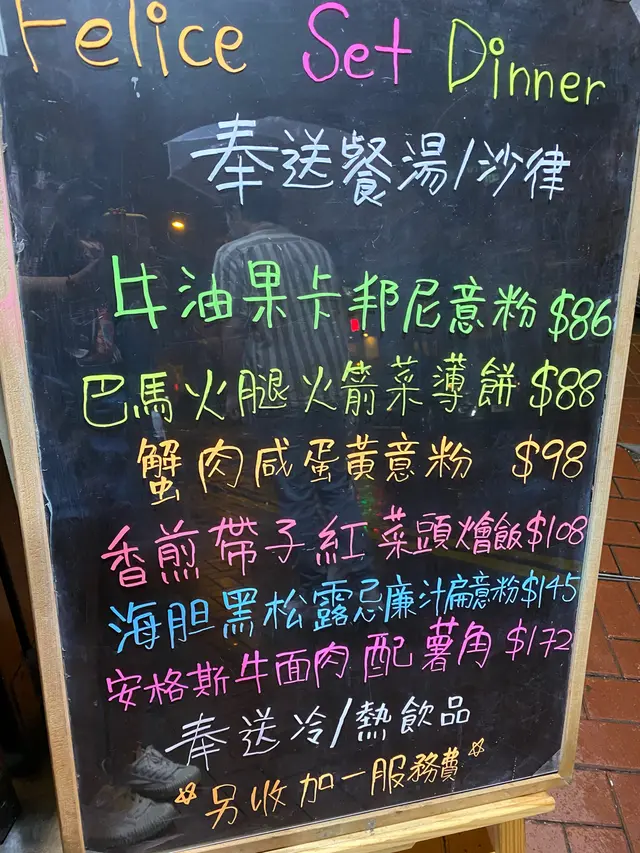 Felice Set Dinner
奉送餐湯/沙律
牛油果卡邦尼意粉 $86
巴馬火腿火箭菜薄餅 $88
蟹肉咸蛋黃意粉 $98
香煎帶子紅菜頭燴飯 $108
海胆黑松露忌廉汁扁意粉 $145
安格斯牛面肉配薯角 $172
奉送冷/熱飲品
*另收加一服務費*